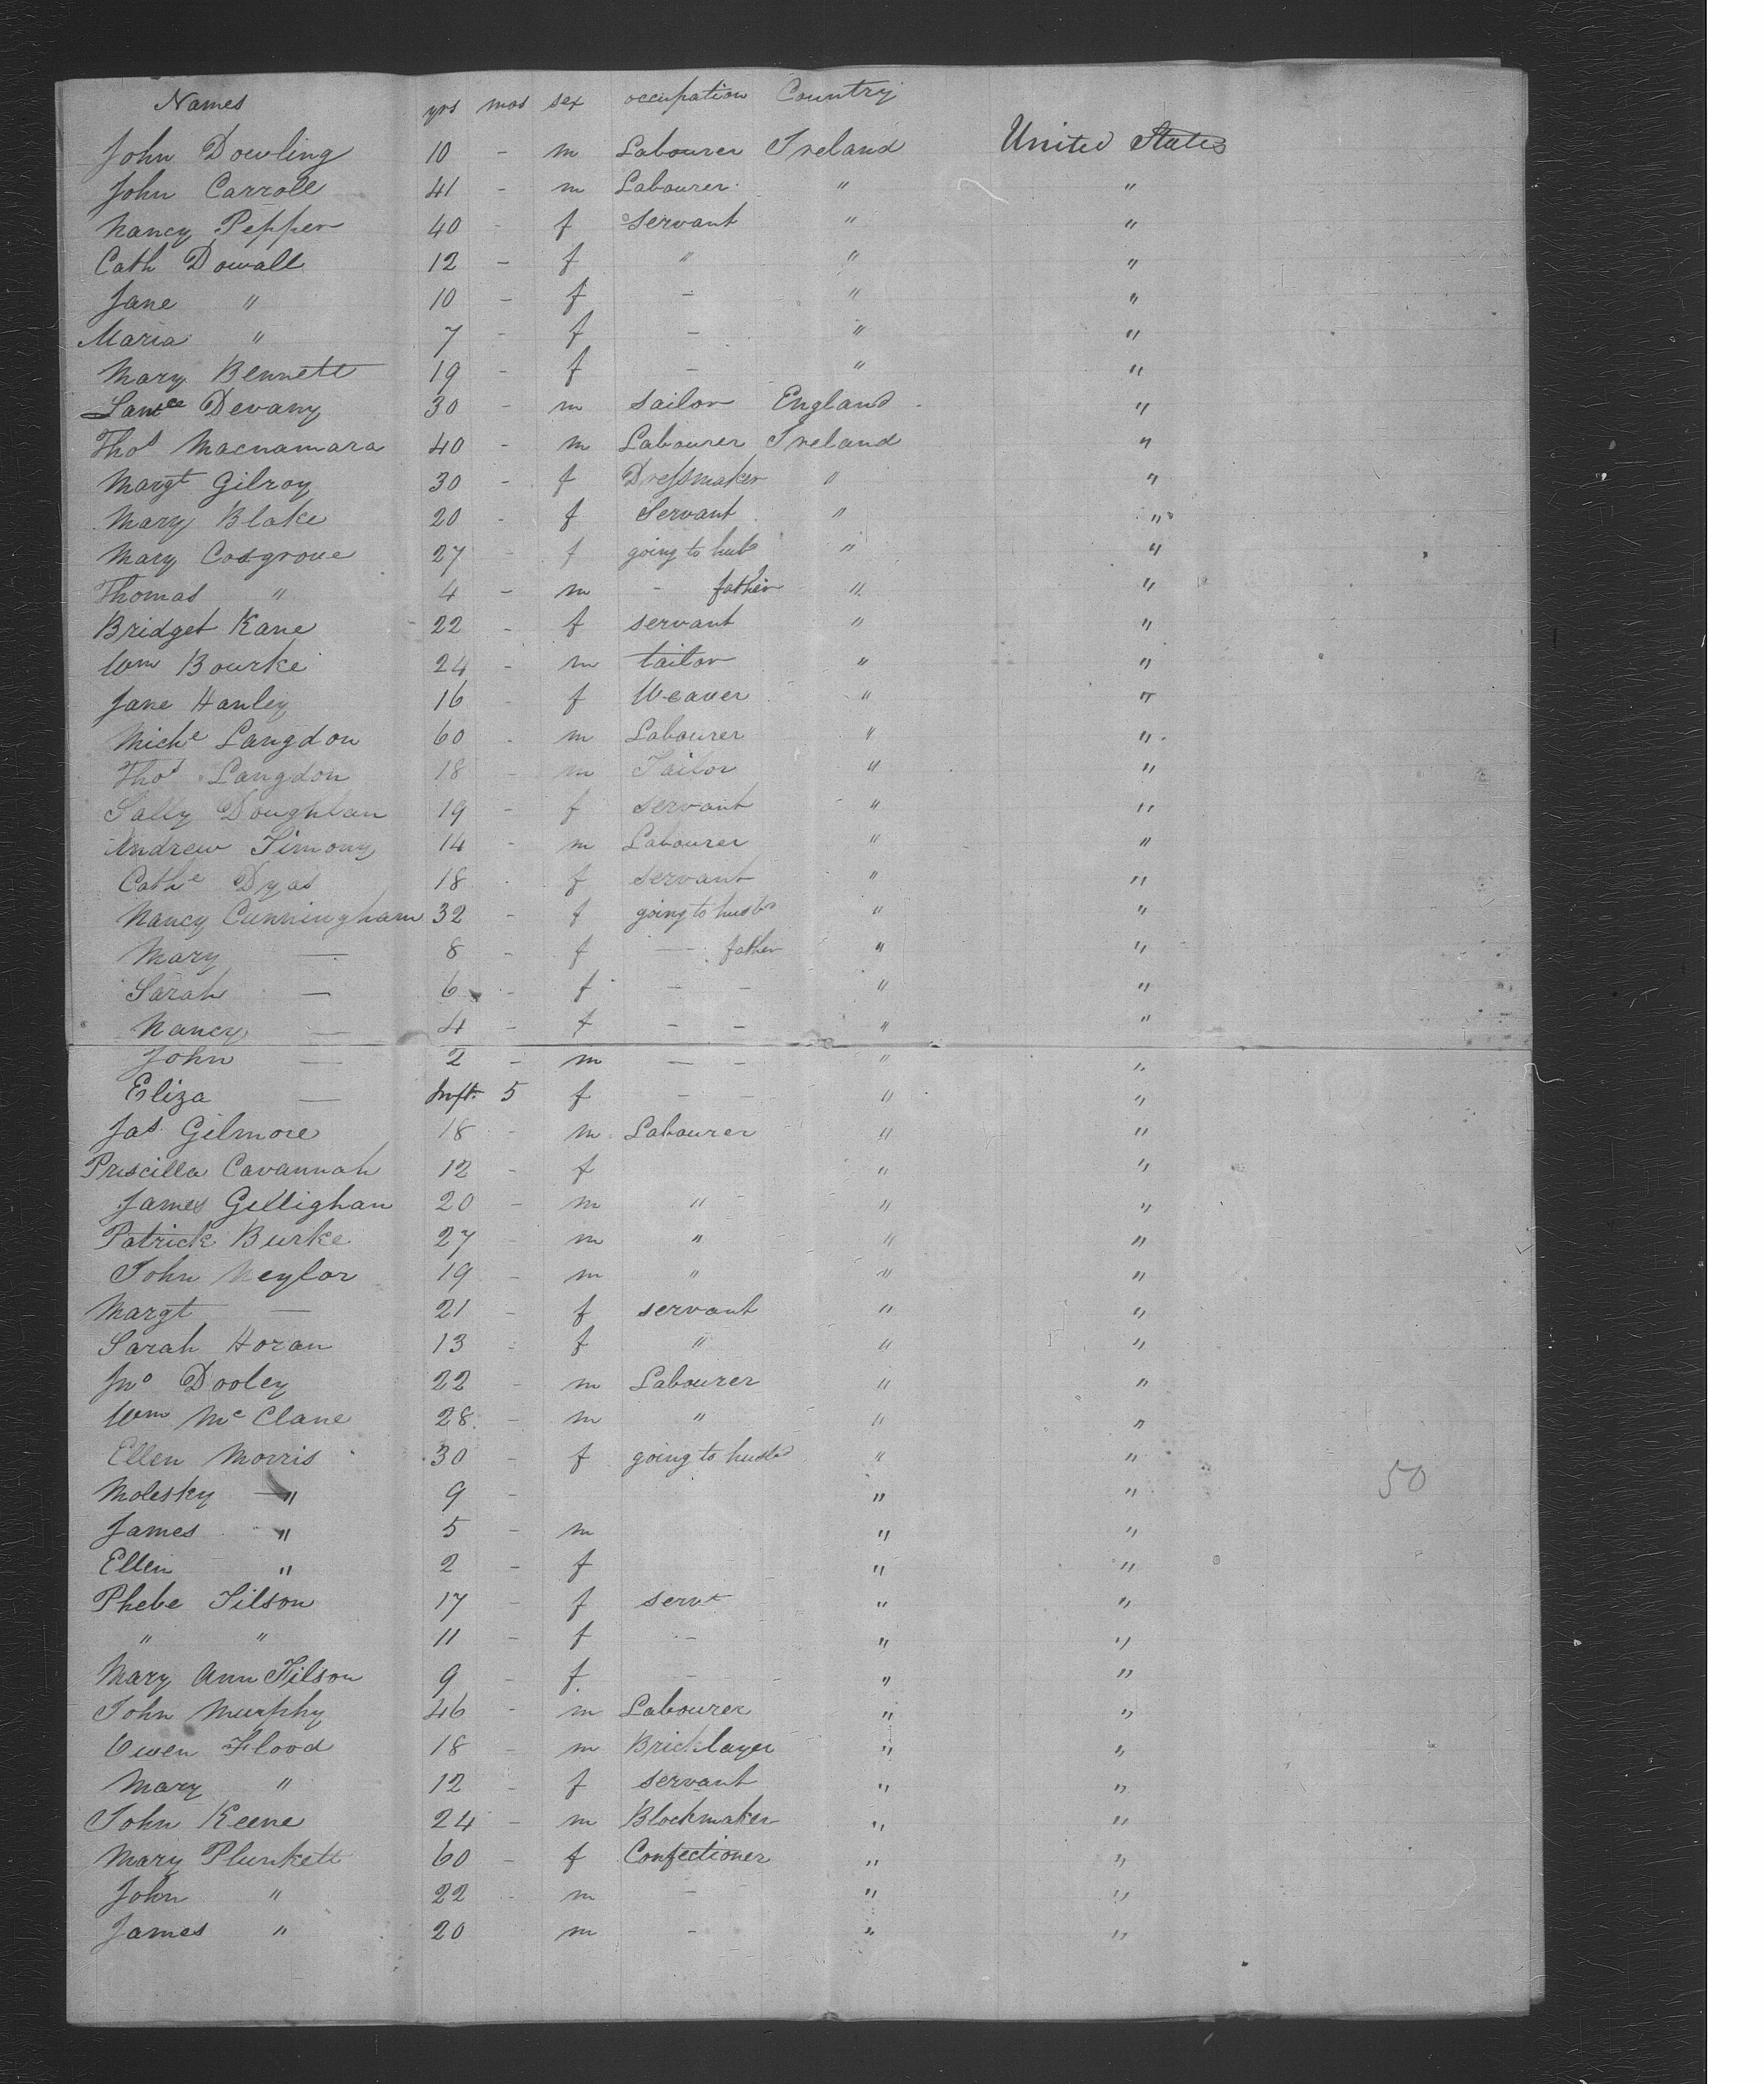 Names yrs mos sex occupation Country
John Dowling 10 - m Labourer Ireland United States
John Carroll 41 - m Labourer " "
Nancy Pepper 40 - f servant " "
Cath Dowall 12 - f " " "
Jane " 10 - f - " "
Maria " 7 - f - " "
Mary Bennett 19 - f - " "
Devany 30 - m sailor England "
Thos Macnamara 40 - m Labourer Ireland "
Margt Gilroy 30 - f Dressmaker " "
Mary Blake 20 - f Servant " "
Mary Cosgrove 27 - f going to husb " "
Thomas " 4 - m - father " "
Bridget Kane 22 - f servant " "
Wm Bourke 24 - m tailor " "
Jane Hanley 16 - f Weaver " "
Miche Langdon 60 - m Labourer " "
Thos Langdon 18 - m Tailor " "
Sally Doughlan 19 - f servant " "
Andrew Timony 14 - m Labourer " "
Cathe Dyas 18 - f servant " "
Nancy Cunningham 32 - f going to husbd " "
Mary — 8 - f — father " "
Sarah — 6 - f - - " "
Nancy — 4 - f - - " "
John — 2 - m - - " "
Eliza — Inft. 5 f - - " "
Jas Gilmore 18 - m Labourer " "
Priscilla Cavannah 12 - f " "
James Gillighan 20 - m " " "
Patrick Burke 27 - m " " "
John Neylor 19 - m " " "
Margt — 21 - f servant " "
Sarah Horan 13 - f " " "
Jno Dooley 22 - m Labourer " "
Wm McClane 28 - m " " "
Ellen Morris 30 - f going to husbd " "
Molesky " 9 - " " 50
James " 5 - m " "
Ellen " 2 - f " "
Phebe Tilson 17 - f servt " "
" " 11 - f - " "
Mary Ann Tilson 9 - f - " "
John Murphy 46 - m Labourer " "
Owen Flood 18 - m Bricklayer " "
Mary " 12 - f servant " "
John Keene 24 - m Blockmaker " "
Mary Plunkett 60 - f Confectioner " "
John " 22 - m - " "
James " 20 m - " "